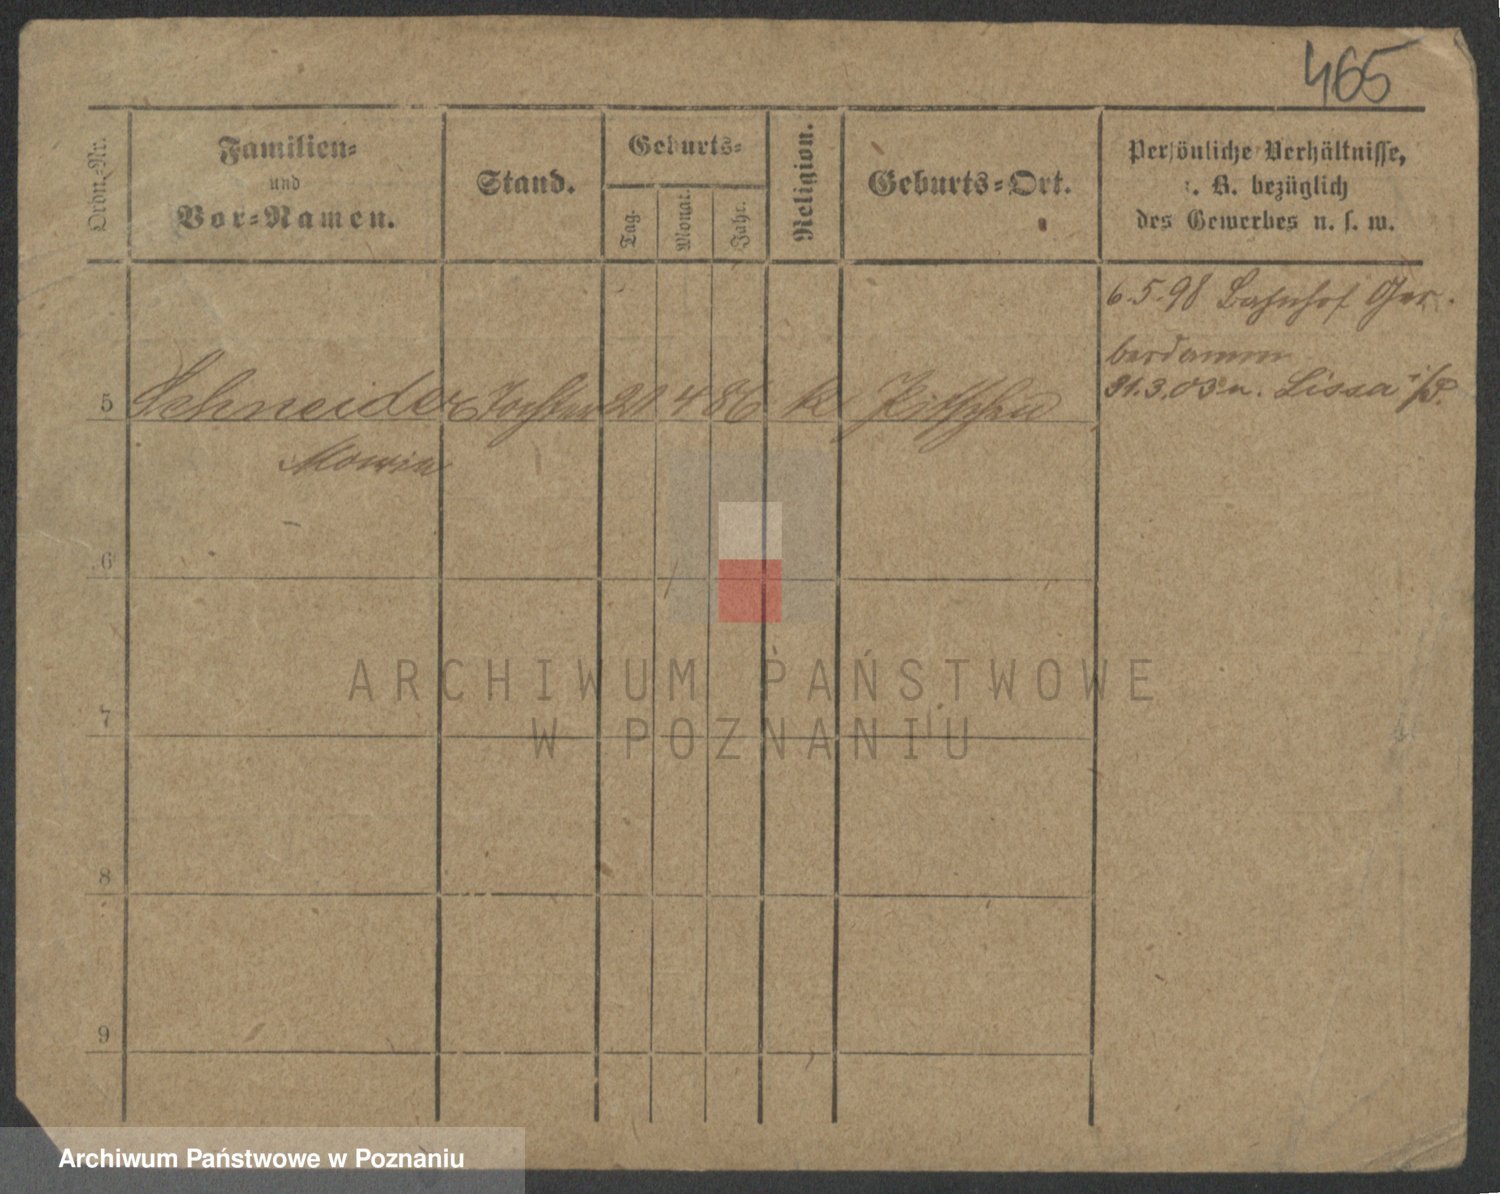 465
Ordn.-Nr.
Familien-
und
Vor-Namen.
Stand.
Geburts-
Tag.
Monat.
Jahr.
Religion.
Geburts-Ort.
Persönliche Verhältnisse,
z. B. bezüglich
des Gewerbes u. s. w.
6.5.98 Bahnhof Ger-
berdamm
31.3.03 n. Lissa i/P.
5 Schneider Tochter 21 4 86 k
6
ARCHIWUM PAŃSTWOWE
7
W POZNANIU
8
9
Archiwum Państwowe w Poznaniu